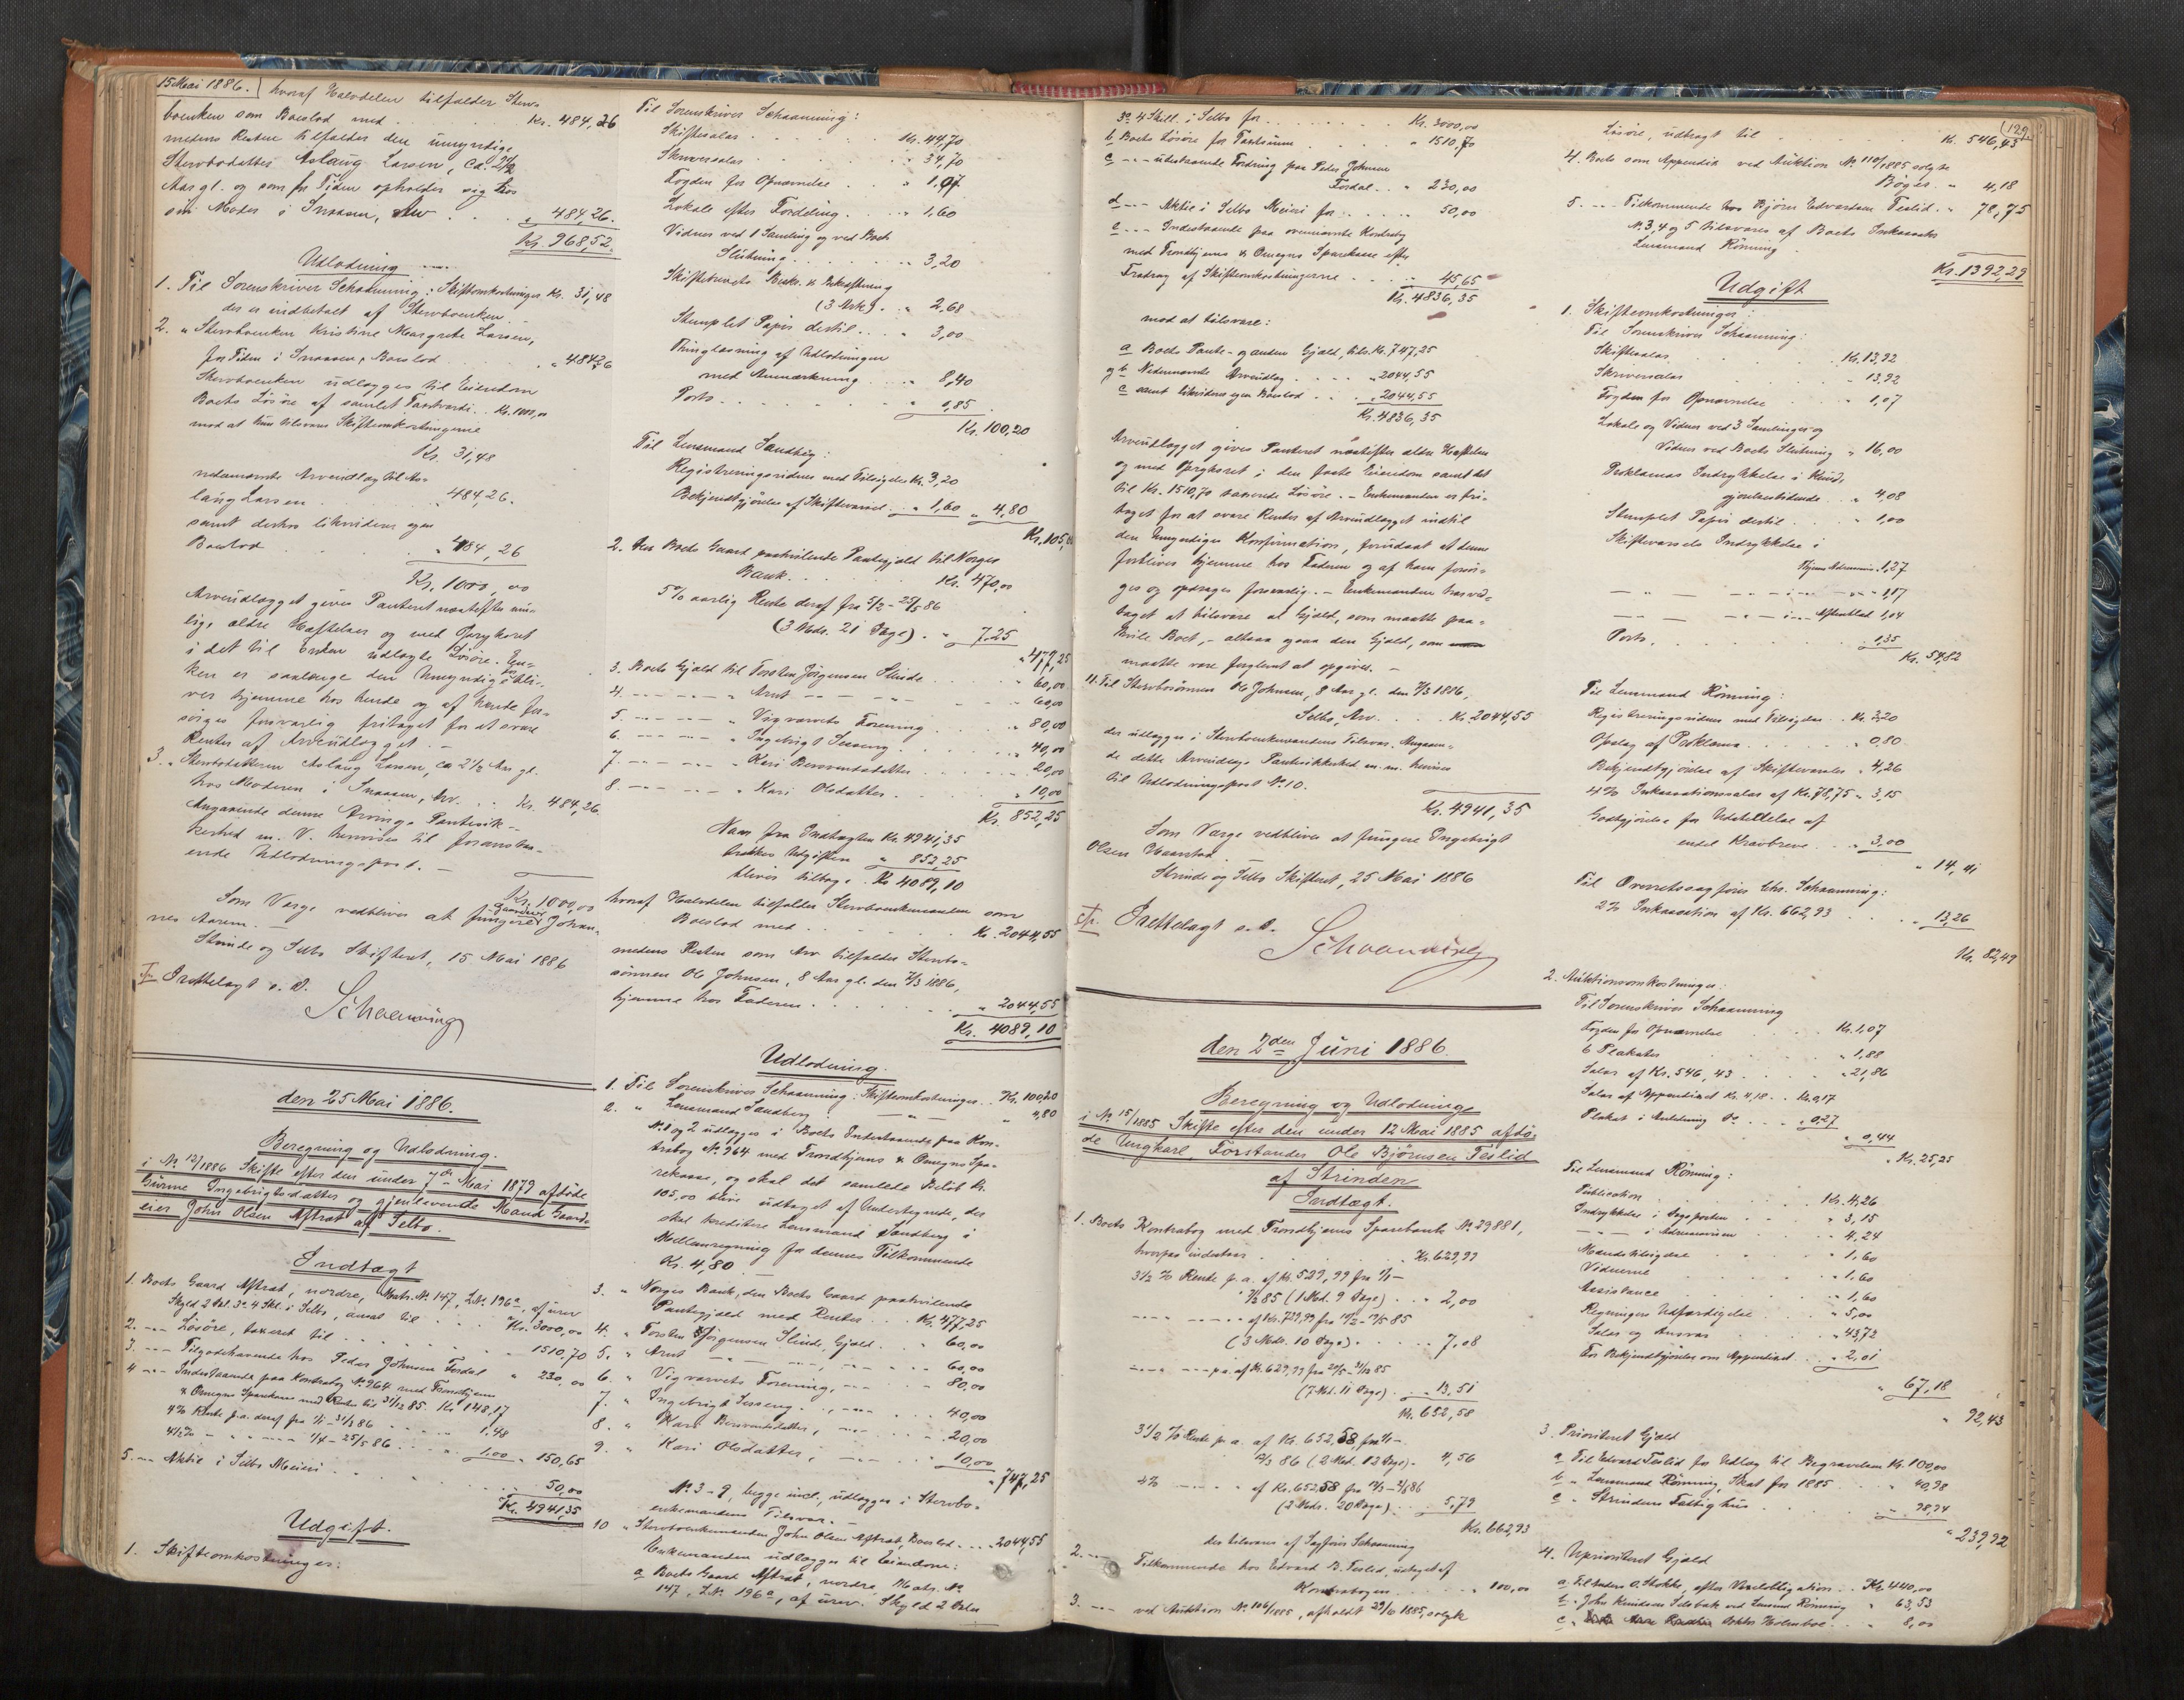 15 Mai 1886. hvoraf Halvdelen tilfalder Sterv-
boenken som Boeslod med Kr. 484,26
medens Resten tilfalder den umyndige
Stervbodatter Aslaug Larsen, ca. 2½
Aar gl. og som for Tiden opholder sig hos
sin Moder i Snaasen, Arv . . . " 484,26.
Kr. 968,52.
Udlodning
1. Til Sorenskriver Schaanning: Skifteomkostninger Kr. 31,48
der er indbetalt af Stervboenken.
2. " Stervboenken Kristine Margrete Larsen,
for Tiden i Snaasen, Boeslod " 484,26
Stervboenken udlægges til Eiendom
Boets Løsøre af samlet Taxtværdi . . Kr. 1000,00
mod at hun tilsvarer Skifteomkostningerne
Kr. 31,48
nedennævnte Arveudlæg til As-
laug Larsen " 484,26.
samt derhos likviderer egen
Boeslod " 484,26
Kr. 1000,00
Arveudlægget gives Panteret næstefter mu-
lig, ældre Hæftelser og med Opryksret
i det til Enken udlagte Løsøre. En-
ken er saalænge den Umyndige for bli-
ver hjemme hos hende og af hende for-
sørges forsvarlig fritaget for at svare
Renter af Arveudlægget. -
3. " Stervbodatteren Aslaug Larsen, ca 2½ Aar gl.
hos Moderen i Snaasen, Arv. . . Kr. 484,26.
Angaaende denne Arvings Pantesik-
kerhed m. V. henvises til foranstaa-
ende Udlodningspost. -
Kr. 1000,00
Som Værge vedbliver at fungere Gaardbr. Johan-
nes Aarem. -
Strinde og Selbo Skifteret, 15 Mai 1886
Irettelagt s. D.
Schaanning
den 25 Mai 1886.
Beregning og Udlodning.
i No 12/1886 Skifte efter den under 7de Mai 1879 afdøde
Gurine Ingebrigtsdatter og gjenlevende Mand Gaard-
eier John Olsen Aftret af Selbo.
Indtægt
1. Boets Gaard Aftret, nordre, Matr. No. 147, L.No. 196a, af urev
Skyld 2 Dal. 3 o. 4 Skl. i Selbo, anat til . . . Kr. 3000,00
2. --- Løsøre, taxeret til . . . " 1510,70
3. --- Tilgodehavende hos Peder Johnsen Fordal " 230,00
4 --- Indestaaende paa Kontrabog No. 964 med Trondhjems
& Omegns Sparekasse med Renter til 31/12 85 Kr 148,17
4% Rente p.a. deraf fra 1/1 - 31/3 86 . . . 1.48
4½% - " - --- 1/4 - 25/5 86 . . . 1.00 " 150,65
5. --- Aktie i Selbo Meieri . . . 50,00
Kr. 4941,35
Udgift.
1. Skifteomkostninger:
Til Sorenskriver Schaanning:
Skiftesalær Kr. 44,70
Skriversalær " 34,70
Fogden for Opnævnelse . . . 1,07
Lokale efter Fordeling . . . " 1,60
Vidner ved 1 Samling og ved Boets
Slutning . . . " 3,20
Skiftebrevets Beskr. & Bekræftning
(3 Ark) . " 2,68
Stemplet Papir dertil . . . " 3,00
Thinglæsning af Udlodningen
med Anmærkning . . . " 8,40
Porto . . . " 0,85
Kr. 100,20
Til Lensmand Sandberg:
Registreringsvidner med Tilsigelse Kr. 3,20
Bekjendtgjørelse af Skiftevarsel . " 1,60 " 4,80
Kr. 105,00
2. Den Boets Gaard paahvilende Pantegjæld til Norges
Bank . . . Kr. 470,00
5% aarlig Rente deraf fra 5/2 - 25/5 86
(3 Mdr. 21 Dage) . " 7,25
" 477,25
3. Boets Gjæld til Torsten Jörgensen Slinde . . " 60,00
4. --- --- " Arnt --- --- " 60,00
5. --- --- " Vigvarvets Forening . . . " 80,00
6. --- --- " Ingebrigt Sesseng . . . " 40,00
7. --- --- " Kari Berentsdatter . . . " 20,00
8. --- --- " Kari Olsdatter . . . " 10,00
Kr. 852,25
Naar fra Indtægten Kr. 4941,35
trækkes Udgiften " 852,25
bliver tilbage . Kr 4089,10
hvoraf Halvdelen tilfalder Stervboenkemanden som
Boeslod med . . . Kr. 2044,55
medens Resten som Arv tilfalder Stervbo-
sønnen Ole Johnsen, 8 Aar gl. den 7/3 1886,
hjemme hos Faderen . . . " 2044,55
Kr. 4089,10
Udlodning.
1. Til Sorenskriver Schaanning: Skifteomkostninger . Kr. 100,20
2. " Lensmand Sandberg --- " 4,80
No. 1 og 2 udlægges i Boets Indestaaende paa Kon-
trabog No. 964 med Trondhjems & Omegns Spa-
rekasse, og skal det samlede Beløb Kr.
105,00 blive udtaget af Undertegnede, der
skal kreditere Lensmand Sandberg i
Mellemregning for dennes Tilkommende
Kr. 4,80
3. " Norges Bank, den Boets Gaard paahvilende
Pantegjæld med Renter . . . Kr. 477,25
4. " Torsten Jörgensen Slinde, Gjæld . . " 60,00
5. " Arnt --- " 60,00
6. " Vigvarvets Forening, --- " 80,00
7. " Ingebrigt Sesseng, --- " 40,00
8. " Kari Berentsdatter, --- " 20,00
9. " Kari Olsdatter, --- 10,00
" 747,25
No. 3 - 9, begge incl., udlægges i Stervbo-
enkemandens Tilsvar. -
10 " Stervboenkemanden John Olsen Aftret, Boeslod . . . 2044,55
Enkemanden udlægges til Eiendom:
a Boets Gaard Aftret, nordre, Matr. No.
147, L.No. 196a, af urev. Skyld 2 Daler
3 o. 4 Skill. i Selbo for . . . Kr. 3000,00
b. Boets Løsøre for Taxtsum . . . " 1510,70
c --- udestaaende Fordring paa Peder Johnsen
Fordal . . " 230,00
d --- Aktie i Selbo Meieri for . . . 50,00
e --- Indestaaende paa ovennævnte Kontrabog
med Trondhjems & Omegns Sparekasse efter
Fradrag af Skifteomkostningerne . . . 45,65
Kr. 4836,35
mod at tilsvare:
a Boets Pante- og anden Gjæld, tils. Kr. 747,25
og b Nedennævnte Arveudlæg . . . " 2044,55
c samt likviderer egen Boeslod . . . " 2044,55
Kr. 4836,35
Arveudlægget gives Panteret næstefter ældre Hæftelser
og med Opryksret i den faste Eiendom samt det
til Kr. 1510,70 taxerede Løsøre. - Enkemanden er fri-
taget for at svare Renter af Arveudlægget indtil
den Umyndiges Konfirmation, forudsat at denne
forbliver hjemme hos Faderen og af ham forsør-
ges og opdrages forsvarlig. - Enkemanden har ved-
taget at tilsvare al Gjæld, som maatte paa-
hvile Boet, - altsaa ogsaa den Gjæld, som
maatte være forglemt at opgives. -
11. Til Stervbosønnen Ole Johnsen, 8 Aar gl. den 7/3 1886,
Selbo, Arv . . . Kr. 2044,55
der udlægges i Stervboenkemandens Tilsvar. Angaaen-
de dette Arveudlægs Pantesikkerhed m. m. henvises
til Udlodningspost No. 10.
Kr. 4941,35
Som Værge vedbliver at fungere Ingebrigt
Olsen Haarstad.
Strinde og Selbo Skifteret, 25 Mai 1886
Irettelagt s. D.
Schaanning
den 2den Juni 1886.
Beregning og Udlodning
i No 15/1885 Skifte efter den under 12 Mai 1885 afdø-
de Ungkarl, Forstander Ole Bjørnsen Teslid
af Strinden
Indtægt.
1. Boets Kontrabog med Trondhjems Sparebank No 29881,
hvorpaa indestaar . . . Kr. 629,99
3½ % Rente p. a. af Kr. 529,99 fra 1/1 -
9/2 85 (1 Md. 9 Dage) . . . 2,00
--- --- af Kr. 729,99 fra 10/2 - 19/5 85
(3 Mdr. 10 Dage) . . . 7,08
--- --- p.a. af Kr. 629,99 fra 20/5 - 31/12 85
(7 Md. 11 Dage) . . . 13,51
Kr. 652,58
3½ % Rente p. a. af Kr. 652,58, fra 1/1 -
12/3 86 (2 Md. 12 Dage) - 4,56
4% --- af Kr. 652,58 fra 13/3 - 2/6 86
(2 Mdr. 20 Dage) . . 5,79
Kr. 662,93
der tilsvares af Sagfører Schaanning
2. --- Tilkommende hos Edvard B. Teslid, udtaget af
Kontrabogen . . . " 100,00
3. --- ved Auktion No. 106/1885, afholdt 29/10 1885, solgte
129
Løsøre, udbragt til . . . Kr. 546,43
4. Boets som Appendix ved Auktion No. 110/1885 solgte
Bøger . . " 4,18
5. --- Tilkommende hos Bjørn Edvardsen Teslid . " 78,75
No. 3, 4 og 5 tilsvares af Boets Inkassator
Lensmand Rönning
Kr. 1392,29
Udgift
1. Skifteomkostninger:
Til Sorenskriver Schaanning:
Skiftesalær . . . Kr. 13,92
Skriversalær " 13,92
Fogden for Opnævnelse . . . " 1,07
Lokale og Vidner ved 3 Samlinger og
Vidner ved Boets Slutning " 16,00
Proklamas Indrykkelse i Kund-
gjørelsestidende . . " 4,08
Stemplet Papir dertil . . . " 1,00
Skiftevarsels Indrykkelse i
Thjems Adresseavis . 1,27
--- " --- i --- " 1,17
--- --- " - i --- Aftenblad 1,04
Porto . . . " 1,35
Kr. 54,82
Til Lensmand Rönning:
Registreringsvidner med Tilsigelse . . Kr. 3,20
Opslag af Proklama . . . " 0,80
Bekjendtgjørelse af Skiftevarsler . " 4,26
4% Inkassationssalær af Kr. 78,75 " 3,15
Godtgjørelse for Udstedelse af
endel Kravbreve . . " 3,00
" 14,41
Til Overretssagfører Chr. Schaanning:
2% Inkassation af Kr. 662,93 . . . " 13,26
Kr. 82,49
2. Auktionsomkostninger:
Til Sorenskriver Schaanning
Fogden for Opnævnelse . . . Kr. 1,07
6 Plakater . . . " 1,88
Salær af Kr. 546,43 . . . " 21,86
Salær af Appendixet Kr. 4,18 . . Kr. 0,17
Plakat i Anledning Do . . . " 0,27
" 0,44
" Kr. 25,25
Til Lensmand Rönning:
Publication . . . Kr. 4,26
Indrykkelse i Dagsposten . . " 3,15
--- " --- i Adresseavisen . . " 4,24
Mandstilsigelse . . . " 1,60
Vidnerne . . . " 1,60
Assistance . . . " 1,60
Regningers Udfærdigelse . . . " 5,00
Salær og Ansvar . . . " 43,72
For Bekjendtgjørelse om Appendixet . . . " 2,01
" 67,18
" 92,43
3. Prioriteret Gjæld
a Til Edvard Teslid for Udlæg til Begravelsen Kr. 100,00
b " Lensmand Rönning, Skat for 1885 . . . 40,98
c " Strindens Fattighus . . . " 98,94
" 239,92
4. Uprioriteret Gjæld
a Til Anders O. Stokke, efter Vexelobligation . . Kr 440,00
b " John Knudsen Selsbak ved Lensmd. Rönning " 63,53
c " Doktor Holmboe . . . " 8,00